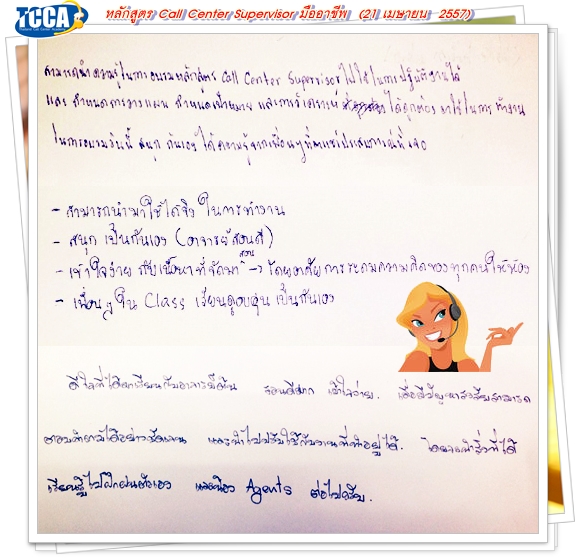 TCCA
Thailand Call Center Academy
หลักสูตร Call Center Supervisor มืออาชีพ (21 เมษายน 2557)
สามารถนำความรู้ในการอบรมหลักสูตร Call Center Supervisor ไปใช้ในการปฏิบัติงานได้
และ กำหนดการวางแผน กำหนดเป้าหมาย และการวิเคราะห์ ได้ถูกต้อง มาใช้ในการ ทำงาน
ในการอบรมวันนี้ สนุก กันเอง ได้ความรู้จากเพื่อนๆที่มาแชร์ประสบการณ์ที่เจอ
- สามารถนำมาใช้ได้จริง ในการทำงาน
- สนุก เป็นกันเอง (อาจารย์สอนดี)
- เข้าใจง่าย กับเนื้อหาที่จัดมาสอน -> โดยอาศัยการระดมความคิดของทุกคนในห้อง
- เพื่อนๆใน Class เรียนดูอบอุ่น เป็นกันเอง
ดีใจที่ได้มาเรียนกับอาจารย์ สอนดีมาก เข้าใจง่าย. เมื่อมีปัญหาสงสัยสามารถ
ตอบคำถามได้อย่างชัดเจน และนำไปปรับใช้กับงานที่ทำอยู่ได้. โดยจะนำสิ่งที่ได้
เรียนรู้ไปฝึกฝนตัวเอง และ Agents ต่อไปครับ.